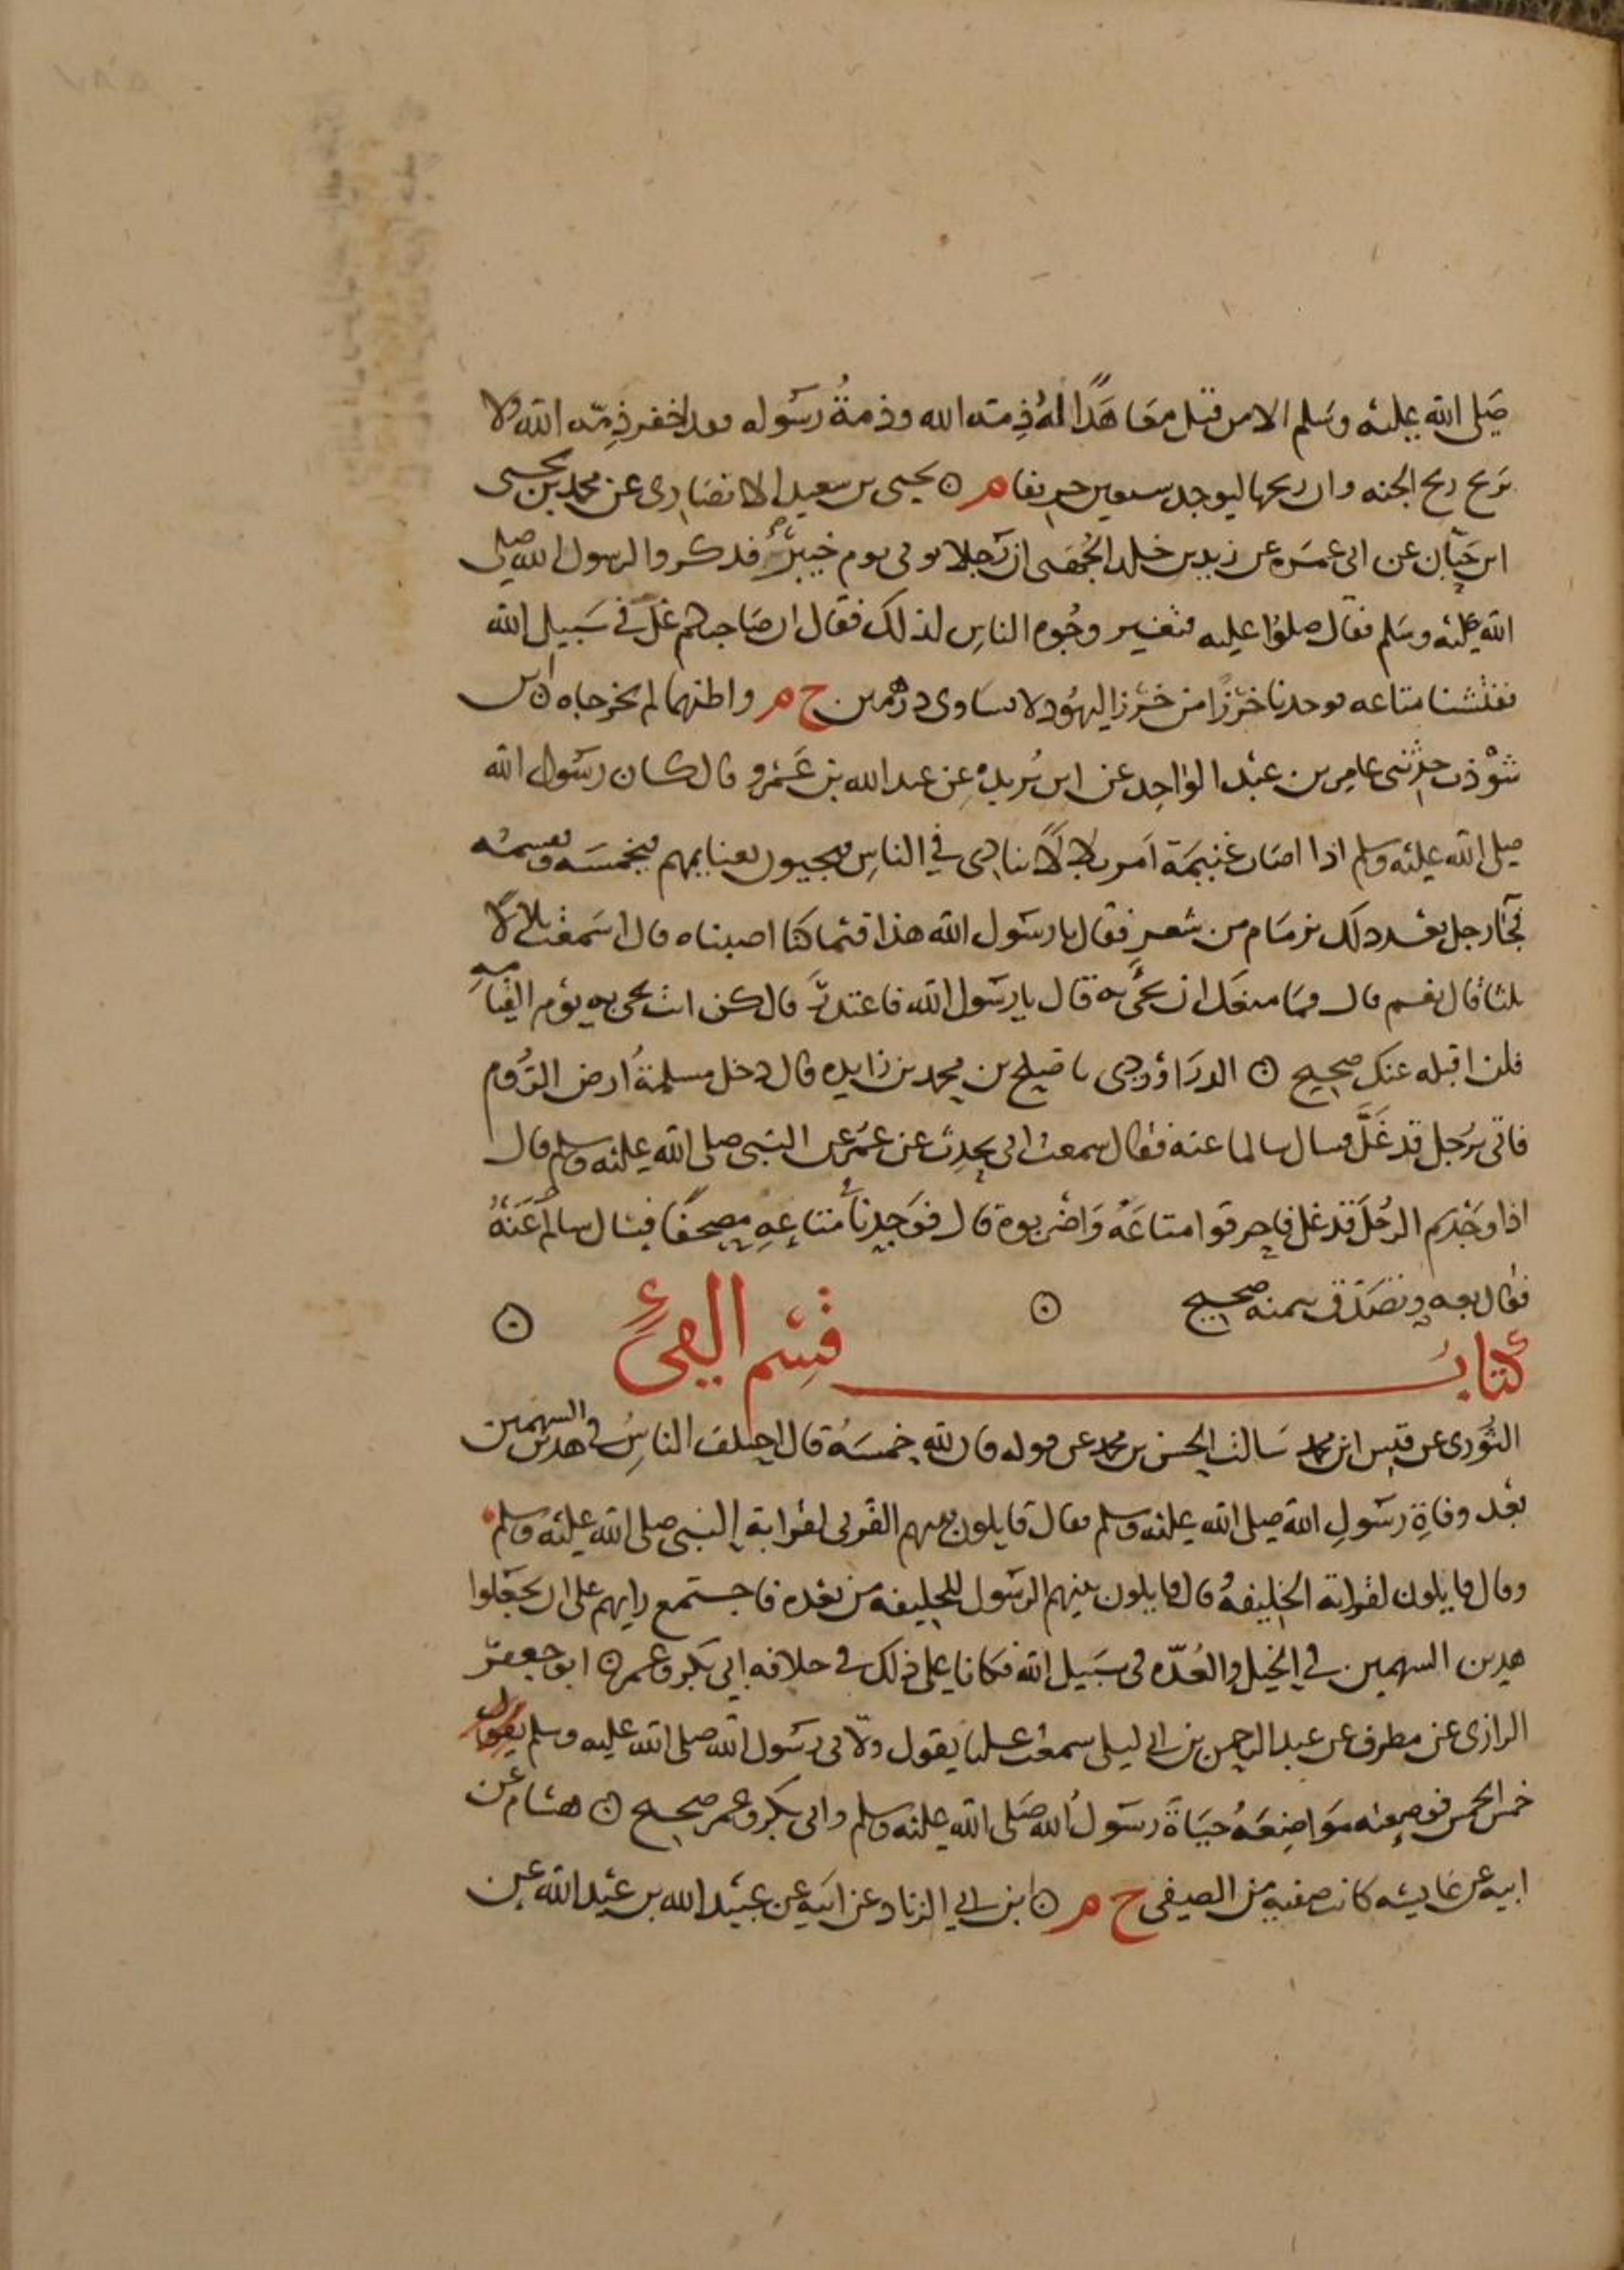 صلى الله عليه وسلم الا من قتل معاهدا له ذمة الله وذمة رسوله فقد اخفر ذمة الله ولا
يرح ريح الجنه وان ريحها ليوجد من سبعين خريفا م ۞ يحيى بن سعيد الانصارى عن محمد بن يحيى
ابن حبان عن ابى عمره عن زيد بن خلد الجهنى ان رجلا توفى يوم خيبر فذكروا لرسول الله صلى
الله عليه وسلم فقال صلوا عليه فتغير وجوه الناس لذلك فقال ان صاحبكم غل في سبيل الله
ففتشنا متاعه فوجدنا خرزا من خرز اليهود لا يساوى درهمين خ م واظنهما لم يخرجاه ۞ ابن
شوذب حدثنى عامر بن عبد الواحد عن ابن بريده عن عبد الله بن عمرو قال كان رسول الله
صلى الله عليه وسلم اذا اصاب غنيمة امر بلالا ينادى في الناس فيجيون بغنايمهم فيخمسه ويقسمه
فجا رجل بعد ذلك بزمام من شعر فقال يا رسول الله هذا فيما كنا اصبناه قال اسمعت بلالا
ثلثا قال نعم قال فما منعك ان تجئ به قال يا رسول الله فاعتذر قال كن انت تجى به يوم القيامه
فلن اقبله عنك صحيح ۞ الدراوردى نا صلح بن محمد بن زايده قال دخل مسلمة ارض الروم
فاتى برجل قد غل فسال سالما عنه فقال سمعت ابى يحدث عن عمر عن النبى صلى الله عليه وسلم قال
اذا وجدتم الرجل قد غل فاحرقوا متاعه واضربوه قال فوجدنا في متاعه مصحفا فسال سالم عنه
فقال بعه وتصدق بثمنه صحيح ۞ ۞
كتاب قسم الفيء
الثورى عن قيس ابن محمد سالت الحسن بن محمد عن قوله فان لله خمسه قال اختلف الناس في هذين السهمين
بعد وفاة رسول الله صلى الله عليه وسلم فقال قايلون سهم القربى لقرابة النبى صلى الله عليه وسلم
وقال قايلون لقرابة الخليفة وقال قايلون سهم الرسول للخليفه من بعده فاجتمع رايهم على ان يجعلوا
هذين السهمين في الخيل والعده فى سبيل الله فكانا على ذلك في خلافه ابى بكر وعمر ۞ ابو جعفر
الرازى عن مطرف عن عبد الرحمن بن ابى ليلى سمعت عليا يقول ولانى رسول الله صلى الله عليه وسلم يقول
خمس الخمس فوضعته مواضعه حياة رسول الله صلى الله عليه وسلم وابى بكر وعمر صحيح ۞ هشام عن
ابيه عن عايشه كانت صفيه من الصفى خ م ۞ ابن ابى الزناد عن ابيه عن عبيد الله بن عبد الله عن